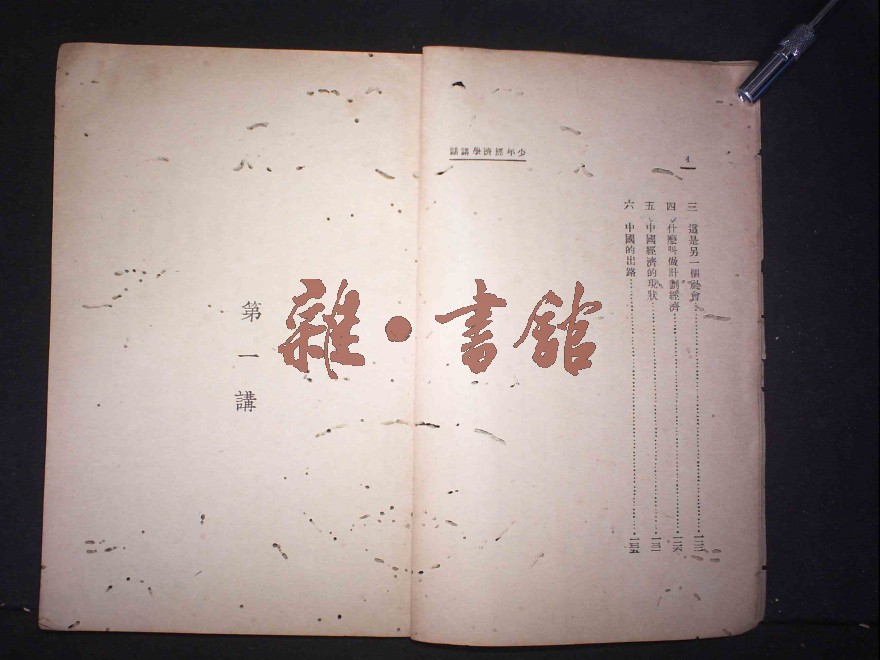 少年經濟學講話
4
三 這是另一個社會
四 什麼叫做計劃經濟
五 中國經濟的現狀……一三一
六 中國的出路……一三五
第一講
雜·書館